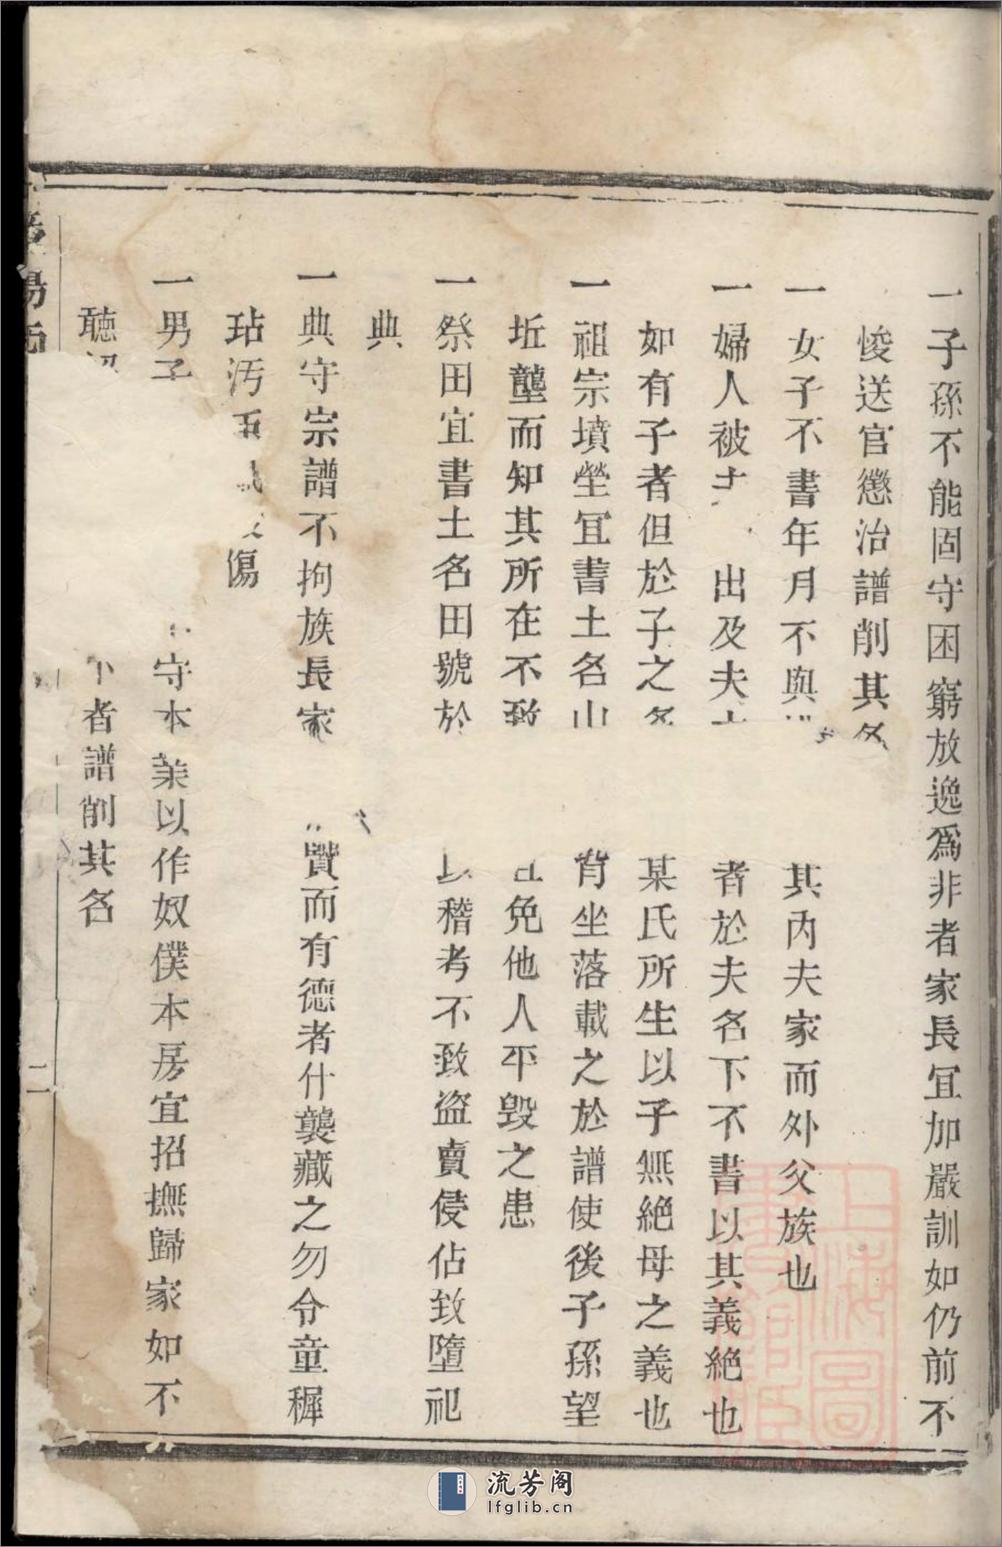 一子孫不能固守困窮放逸爲非者家長冝加嚴訓如仍前不
悛送官懲治譜削其名
一女子不書年月不與 其內夫家而外父族也
一婦人被 出及夫 者於夫名下不書以其義絕也
如有子者但於子之名 某氏所生以子無絕母之義也
一祖宗墳塋冝書土名山 背坐落載之於譜使後子孫望
坵壟而知其所在不致 免他人平毁之患
一祭田宜書土名田號於 以稽考不致盗賣侵佔致墮祀
典
一典守宗譜不拘族長家 賢而有德者什襲藏之勿令童穉
玷污 傷
一男子 守本業以作奴僕本房宜招撫歸家如不
聽 者譜削其名
陽
二
上海圖書館藏
流芳阁
lfglib.cn